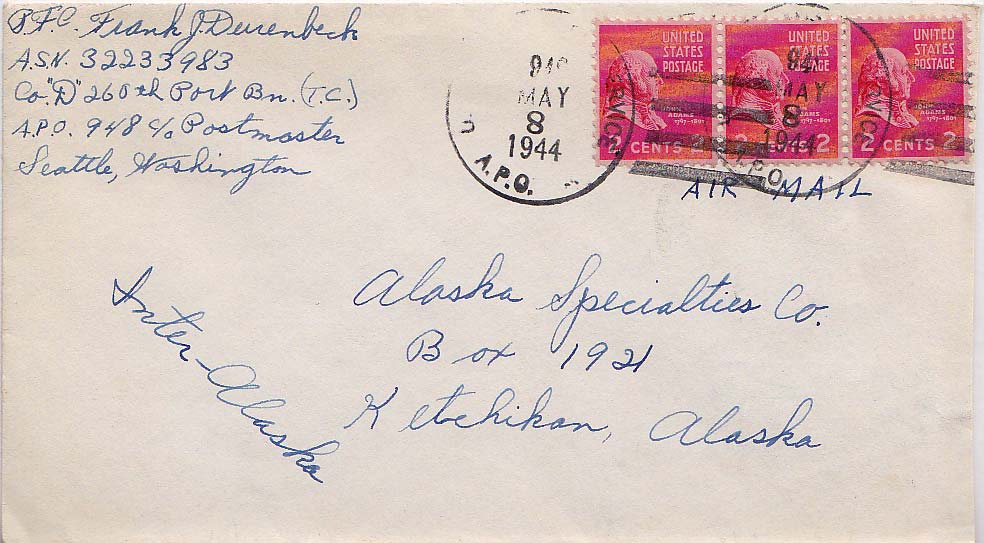 P.F.C. Frank J. Deurenbeck
A.S.N. 32233983
Co. "D" 260th Port Bn. (T.C.)
A.P.O. 948 c/o Postmaster
Seattle, Washington
MAY
8
1944
A.P.O.
UNITED
STATES
POSTAGE
JOHN
ADAMS
1797-1801
2 CENTS
UNITED
STATES
POSTAGE
1797-1801
2
MAY
8
1944
A.P.O.
UNITED
STATES
POSTAGE
2 CENTS 2
AIR MAIL
Inter-Alaska
Alaska Specialties Co.
Box 1921
Ketchikan, Alaska